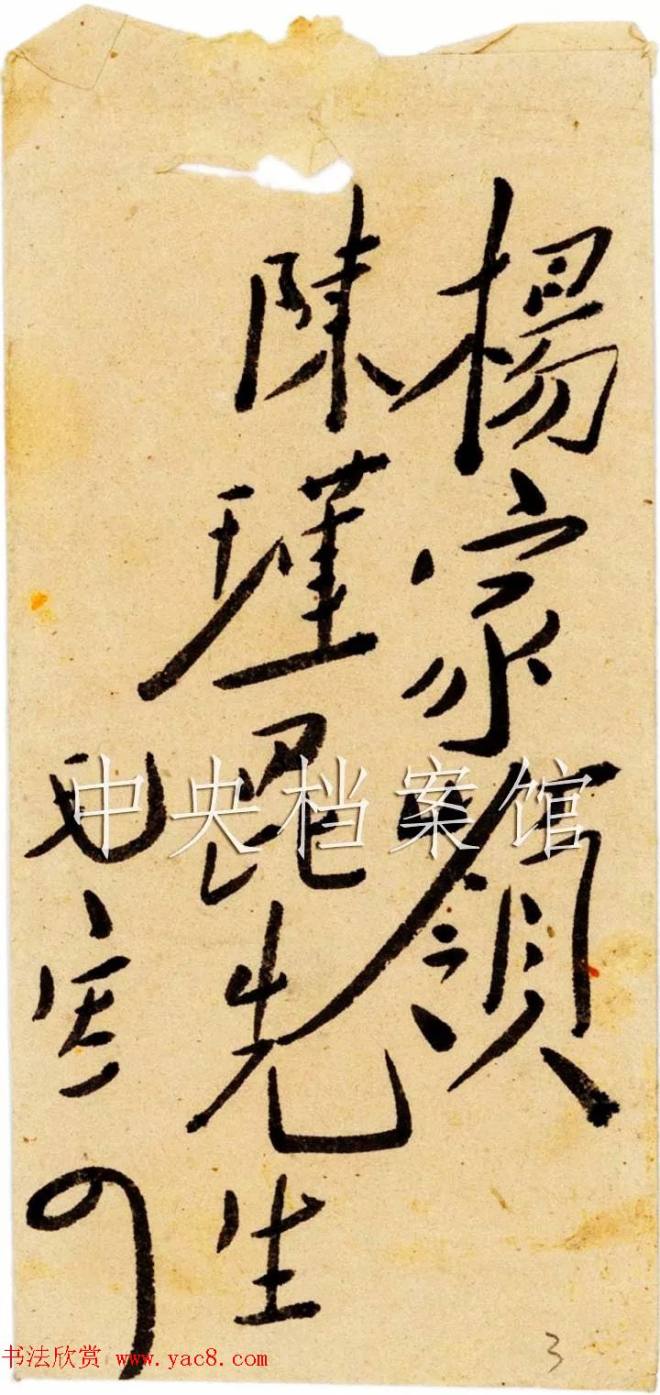 楊家領
陳瑾昆先生
毛寄
中央档案馆
3
书法欣赏 www.yac8.com